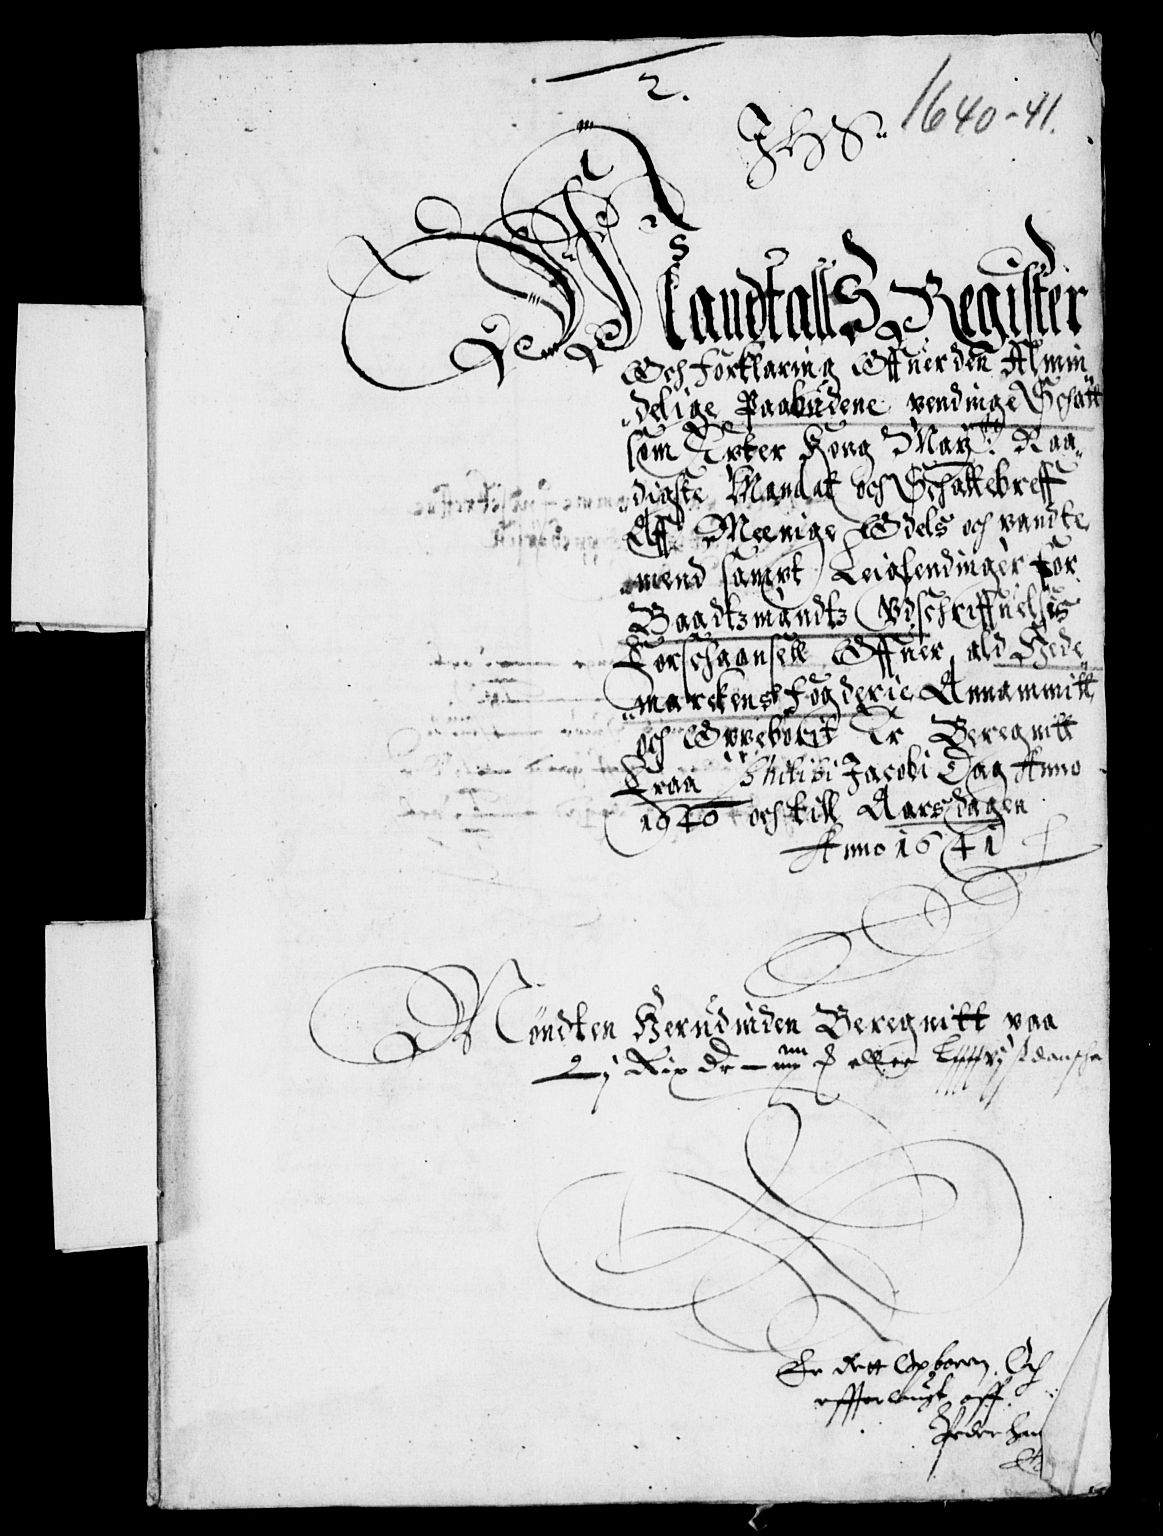 2.
IHS
1640-41.
Mandtalls Register
Och forklaring Offuer den Almin
delige Paabudene vendinge Schatt
som Epter Kong May: tts Naa
digste Mandat och Schattebreff
Aff Meenige Odels och vandte
mend sampt Leiglendinger for
Baadtzmandtz Vdschriffuelsis
Forschaansell Offuer ald Hede
marckens fogderie Annammitt
och Opeborit Er Beregnitt
Fraa Philipi Jacobi Dag Anno
1640 och till Aarsdagen
Anno 1641
Möndten Herudinden Beregnitt paa
Rix dr eller danske
Er Rett Opboren Och
Peder